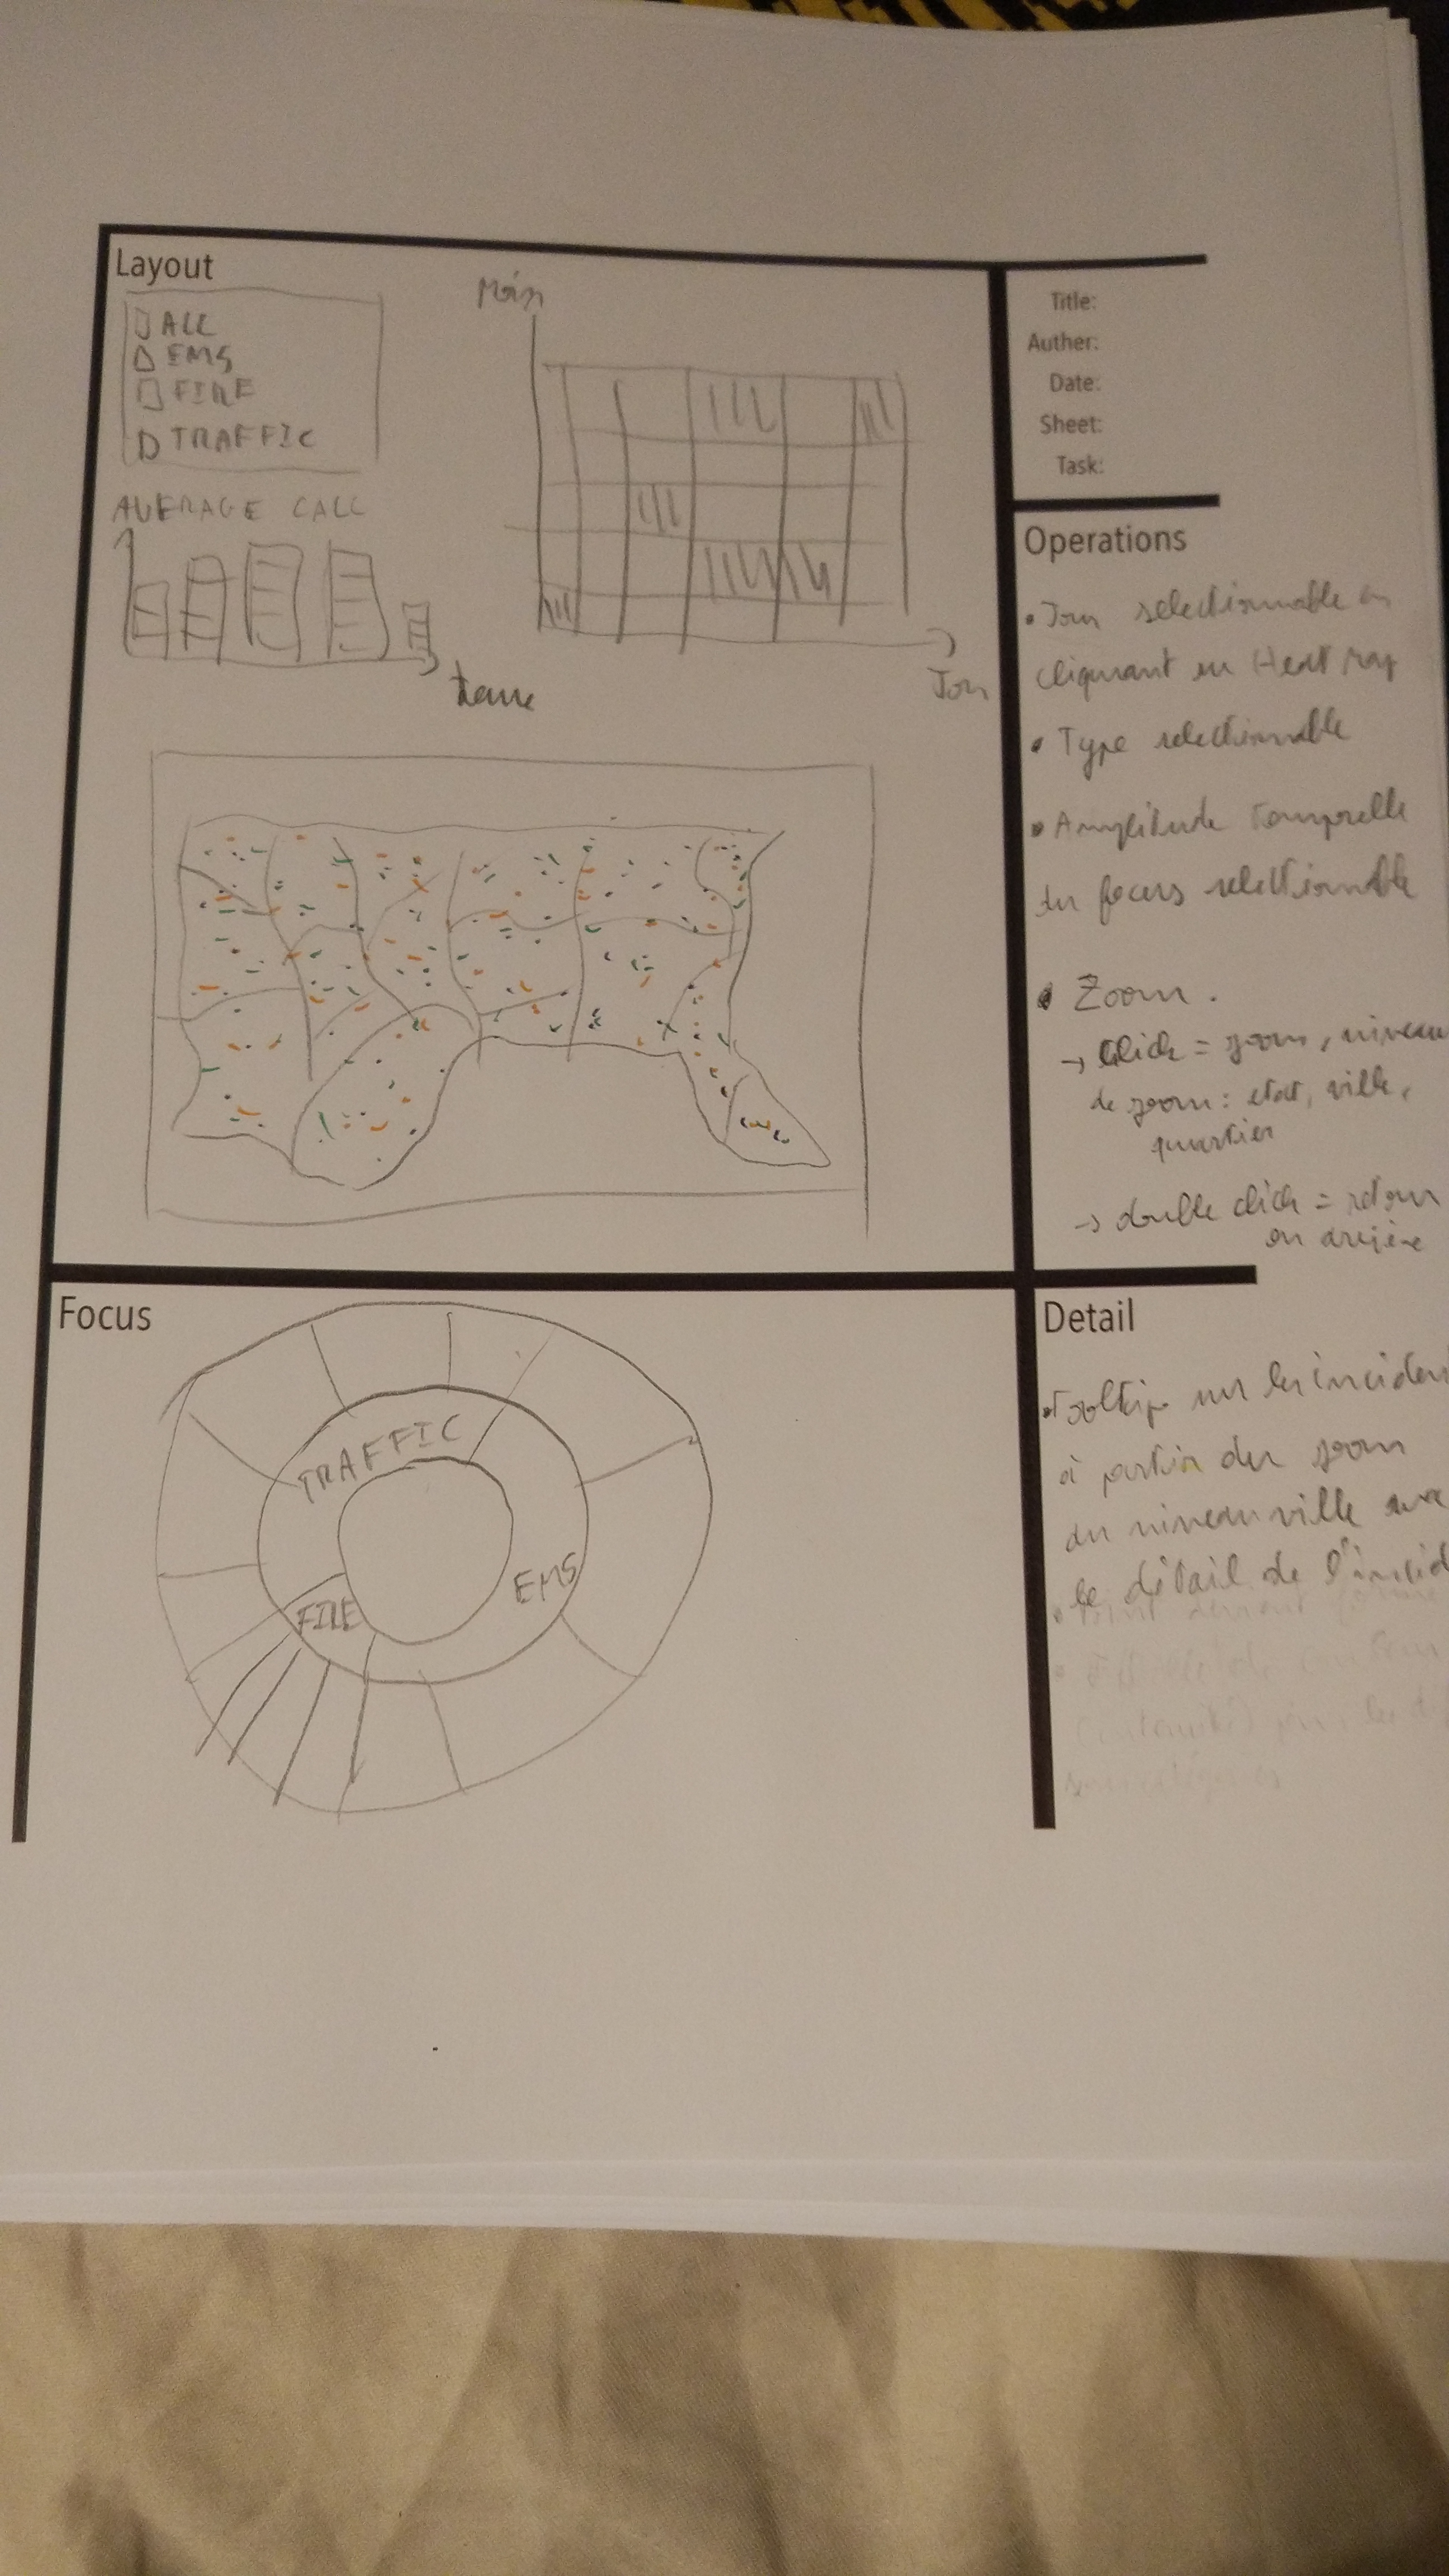 Layout
ALL
EMS
FIRE
TRAFFIC
AVERAGE CALL
Mois
Jour
Title:
Auther:
Date:
Sheet:
Task:
Operations
• Jour selectionnable en
cliquant sur Heat map
• Type selectionnable
• Amplitude temporelle
du focus selectionnable
• Zoom.
→ Click = zoom, niveau
de zoom: etat, ville,
quartier
→ double click = retour
en arrière
Focus
TRAFFIC
EMS
FIRE
Detail
• Tooltip sur les incident
à partir du zoom
du niveau ville avec
le détail de l'incid